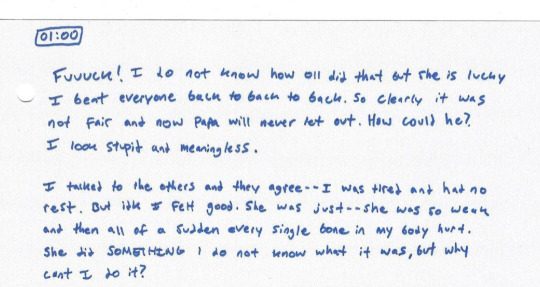 01:00
Fuuuck! I do not know how 011 did that but she is lucky
I beat everyone back to back to back. So clearly it was
not fair and now Papa will never let out. How could he?
I look stupid and meaningless.
I talked to the others and they agree--I was tired and had no
rest. But idk I felt good. She was just--she was so weak
and then all of a sudden every single bone in my body hurt.
She did SOMETHING I do not know what it was, but why
cant I do it?